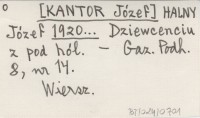 [KANTOR Józef] HALNY
Józef 1920... Dziewcenciu
z pod hól. — Gaz. Podh.
8, nr 14.
Wiersz.